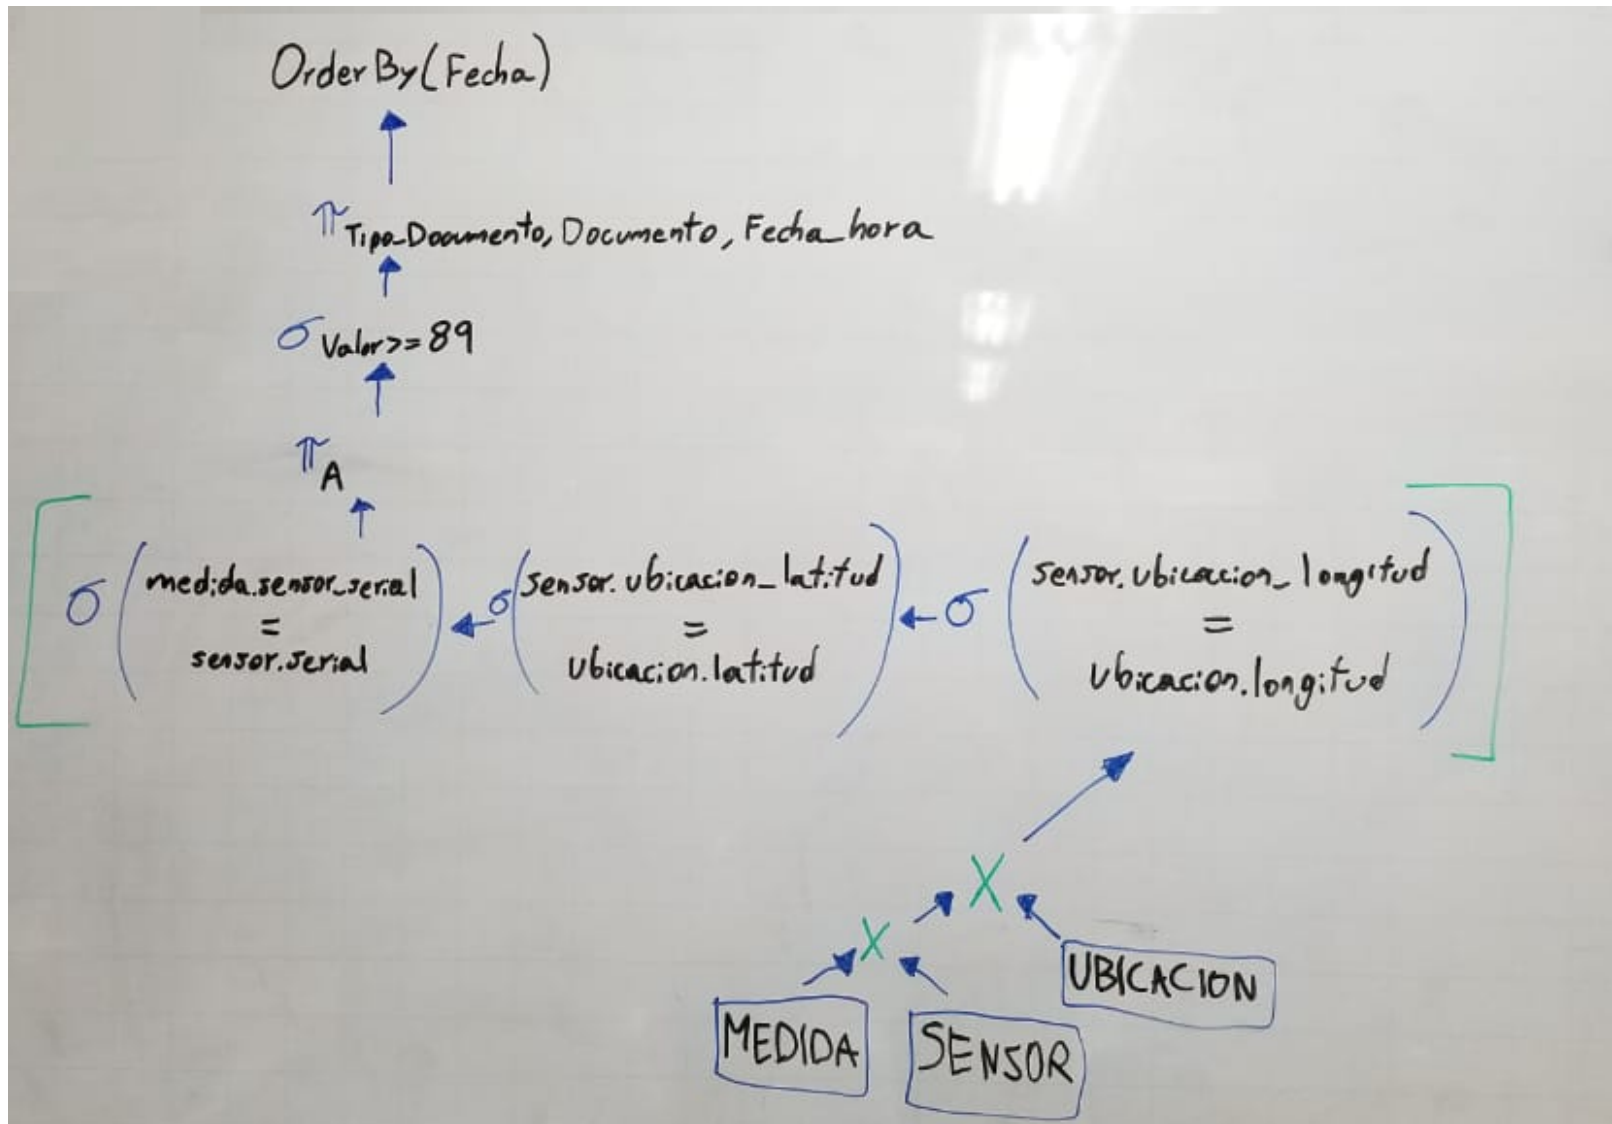 OrderBy(Fecha)
π Tipo_Documento, Documento, Fecha_hora
σ Valor>=89
π A
σ (medida.sensor_serial = sensor.serial) ← σ (sensor.ubicacion_latitud = ubicacion.latitud) ← σ (sensor.ubicacion_longitud = ubicacion.longitud)
X
X
UBICACION
MEDIDA
SENSOR